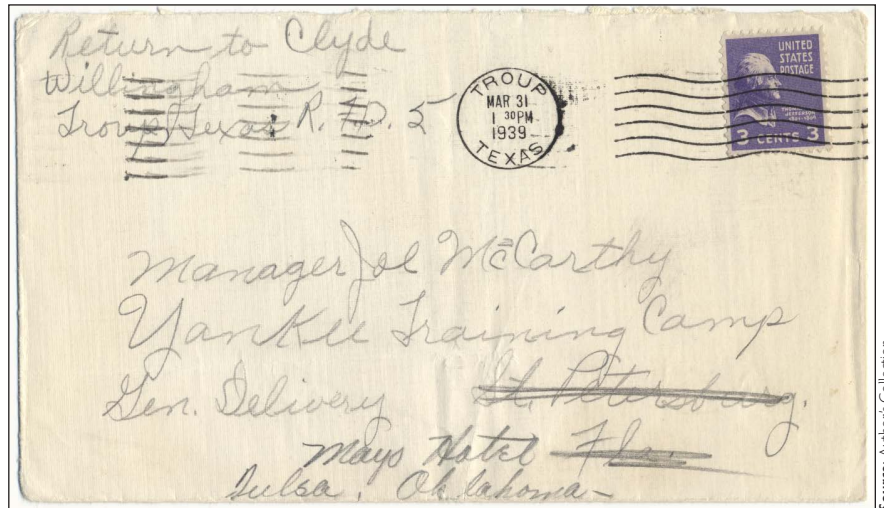 Return to Clyde
Willingham
Troup Texas R. F.D. 5
TROUP
MAR 31
1 30PM
1939
TEXAS
UNITED
STATES
POSTAGE
THOMAS
JEFFERSON
1801-1809
3 CENTS 3
Manager Joe McCarthy
Yankee Training Camp
Gen. Delivery St. Petersburg.
Mayo Hotel Fla.
Tulsa, Oklahoma-
Source: Author's Collection